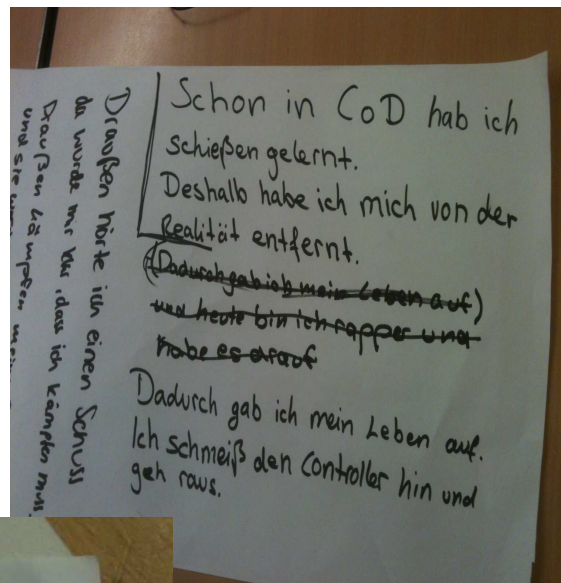 Schon in CoD hab ich
schießen gelernt.
Deshalb habe ich mich von der
Realität entfernt.
(Dadurch gab ich mein Leben auf)
und heute bin ich rapper und
habe es drauf
Dadurch gab ich mein Leben auf.
Ich schmeiß den Controller hin und
geh raus.
Draußen hörte ich einen Schuss
da wurde mir klar, dass ich kämpfen muss.
Draußen kämpfen
und sie